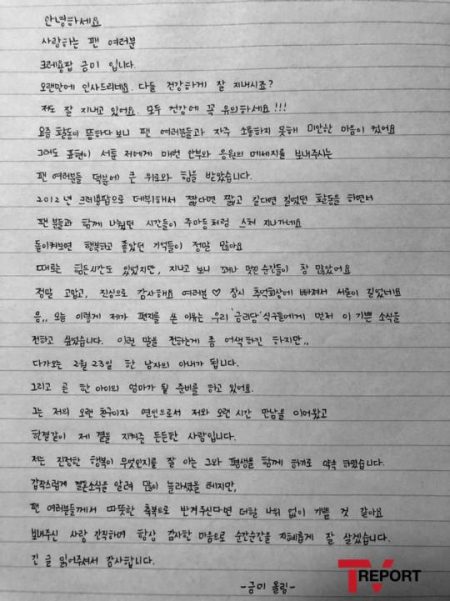 안녕하세요
사랑하는 팬 여러분
크레용팝 금미 입니다.
오랜만에 인사드리네요. 다들 건강하게 잘 지내시죠?
저도 잘 지내고 있어요. 모두 건강에 꼭 유의하세요!!!
요즘 활동이 뜸하다 보니 팬 여러분들과 자주 소통하지 못해 미안한 마음이 컸어요
그래도 표현이 서툰 저에게 매번 안부와 응원의 메세지를 보내주시는
팬 여러분들 덕분에 큰 위로와 힘을 받았습니다.
2012년 크레용팝으로 데뷔해서 짧다면 짧고 길다면 길었던 활동을 하면서
팬 분들과 함께 나눴던 시간들이 주마등처럼 스쳐 지나가네요
돌이켜보면 행복하고 좋았던 기억들이 정말 많아요
때로는 힘든시간도 있었지만, 지나고 보니 꽤나 멋진 순간들이 참 많았어요
정말 고맙고, 진심으로 감사해요 여러분♡ 잠시 추억회상에 빠져서 서론이 길었네요
음,, 오늘 이렇게 제가 편지를 쓴 이유는 우리 '금리당' 식구들에게 먼저 이 기쁜 소식을
전하고 싶었습니다. 이런 말을 전하는게 좀 어색하긴 하지만,,
다가오는 2월 23일 한 남자의 아내가 됩니다.
그리고 곧 한 아이의 엄마가 될 준비를 하고 있어요.
그는 저의 오랜 친구이자 연인으로서 저와 오랜 시간 만남을 이어왔고
한결같이 제 곁을 지켜준 든든한 사람입니다.
저는 진정한 행복이 무엇인지를 잘 아는 그와 평생을 함께 하기로 약속 하였습니다.
갑작스럽게 결혼소식을 알려 많이 놀라셨을 테지만,
팬 여러분들께서 따뜻한 축복으로 반겨주신다면 더할 나위 없이 기쁠 것 같아요
보내주신 사랑 간직하며 항상 감사한 마음으로 순간순간을 지혜롭게 잘 살겠습니다.
긴 글 읽어주셔서 감사합니다.
-금미 올림-
TV REPORT